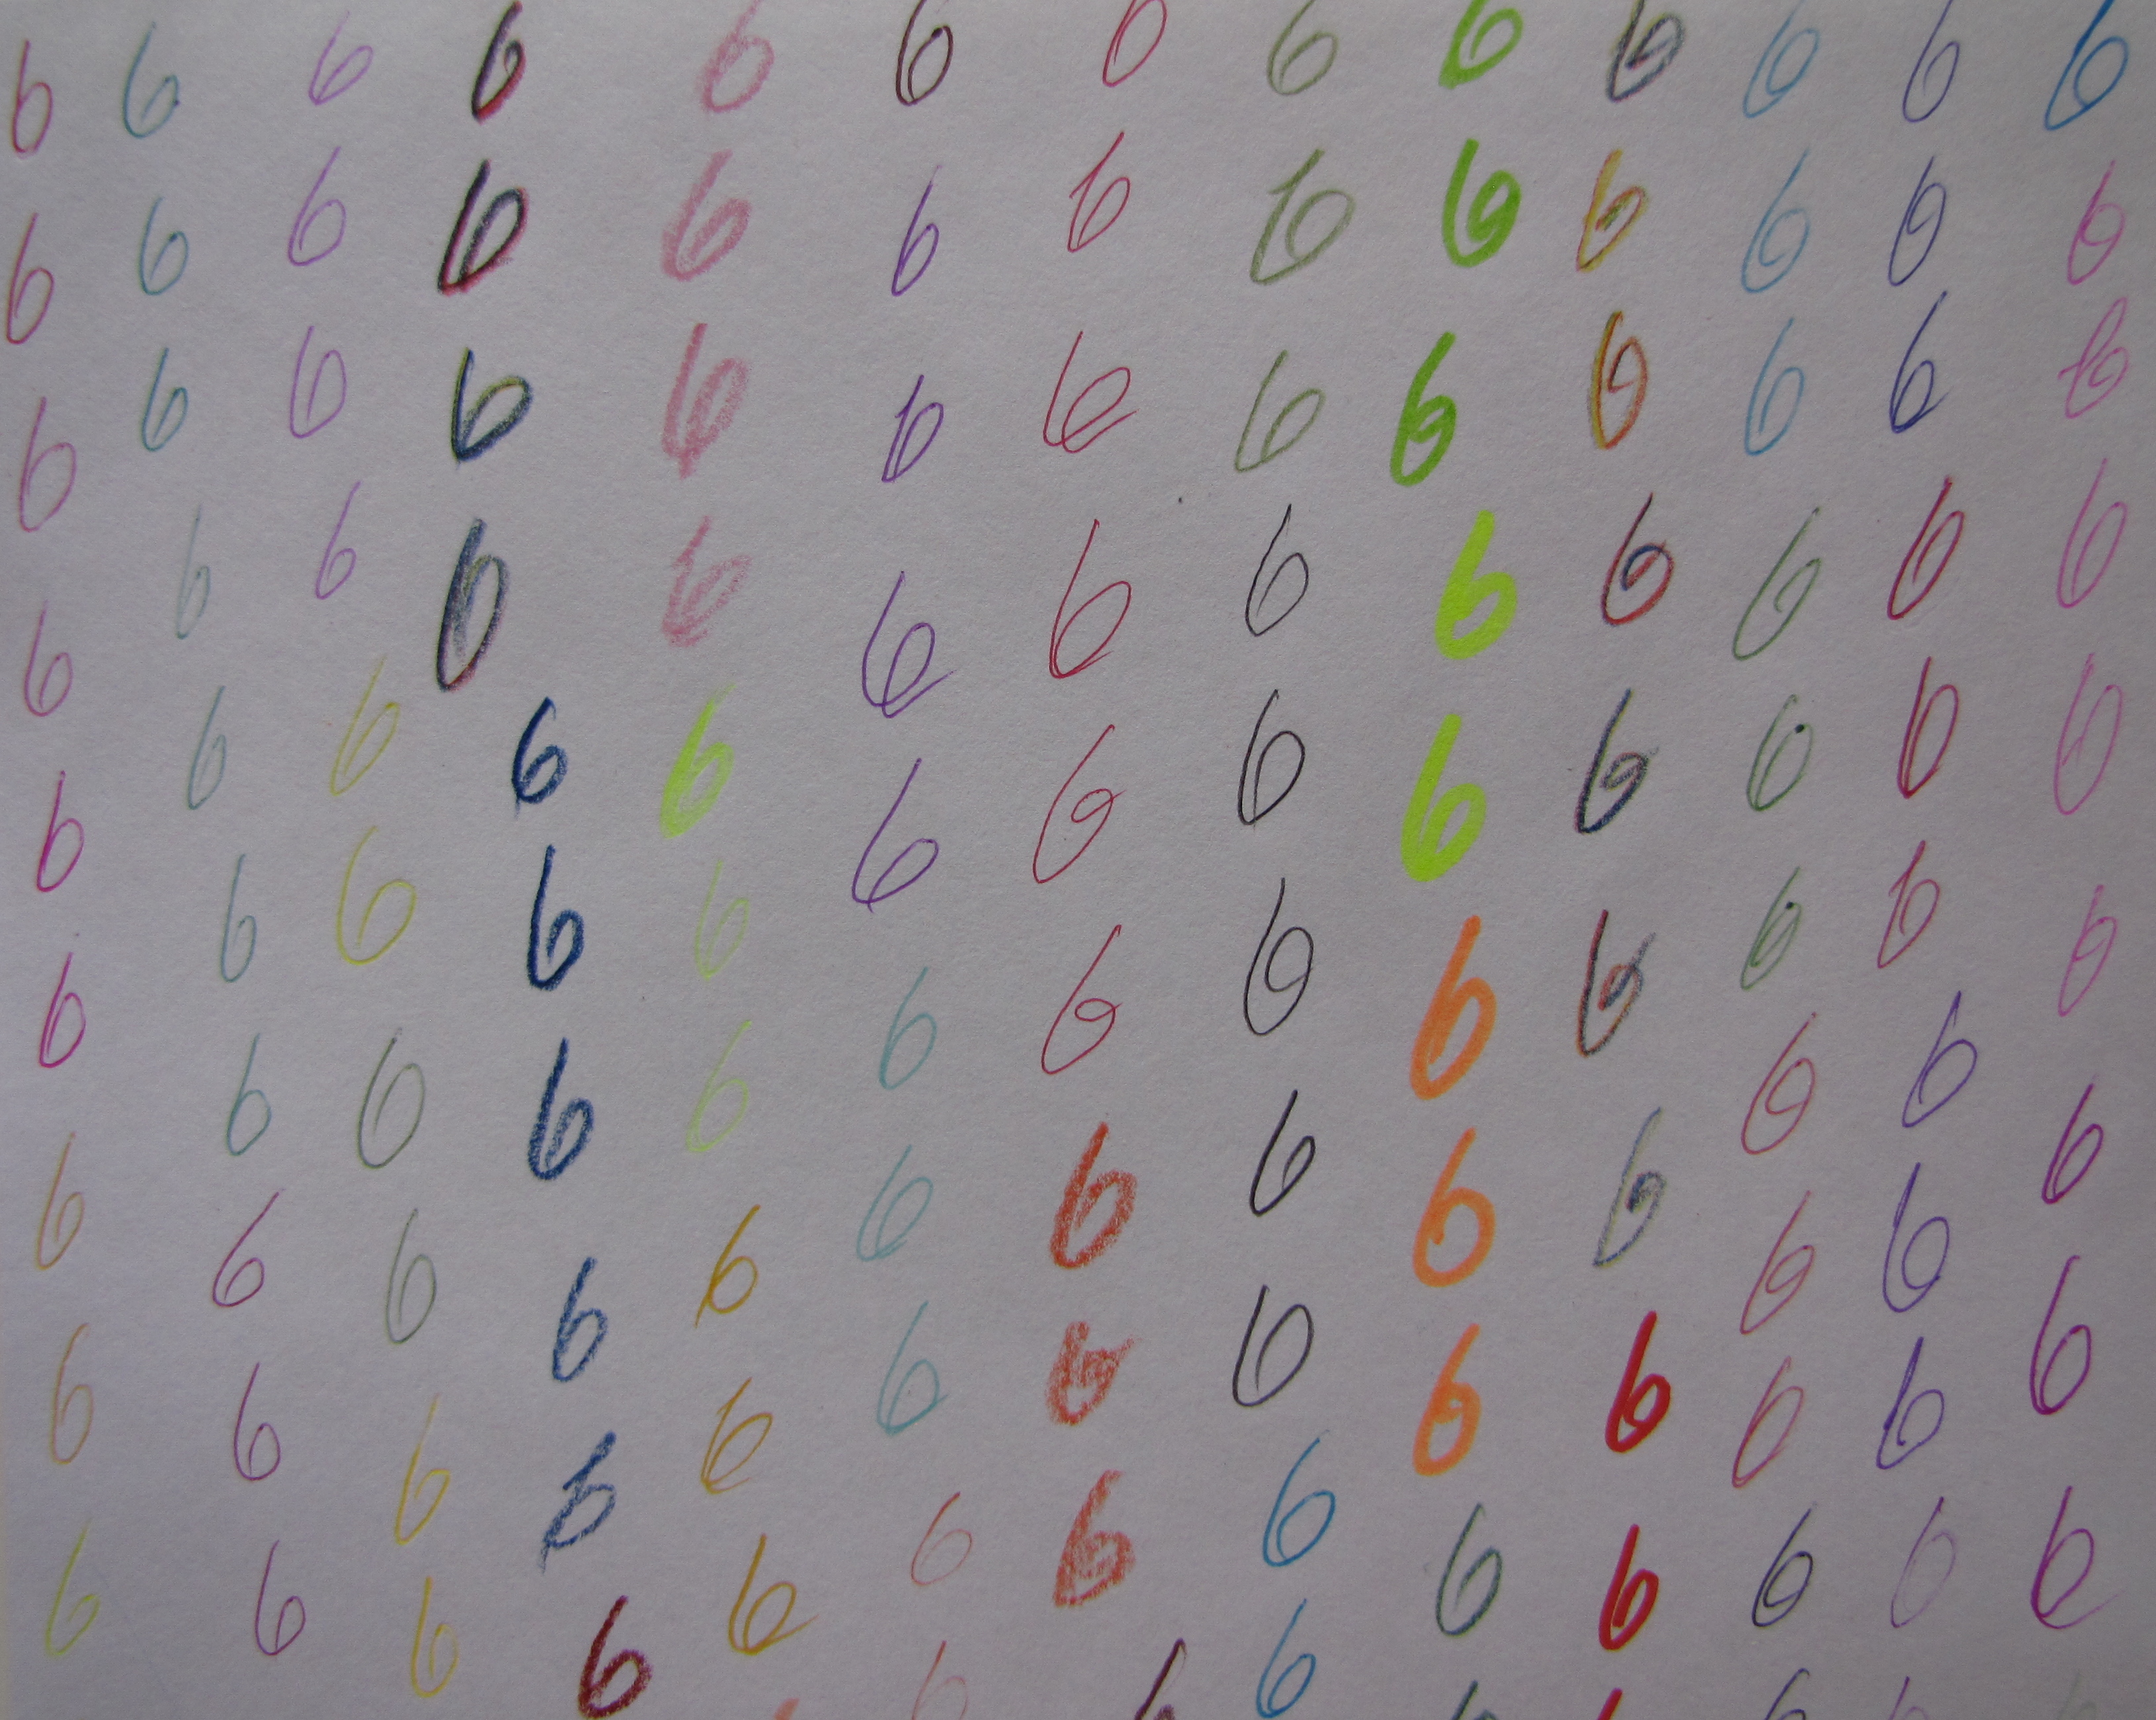 6 6 6 6 6 6 6 6 6 6 6 6 6
6 6 6 6 6 6 6 6 6 6 6 6 6
6 6 6 6 6 6 6 6 6 6 6 6 6
6 6 6 6 6 6 6 6 6 6 6 6 6
6 6 6 6 6 6 6 6 6 6 6 6 6
6 6 6 6 6 6 6 6 6 6 6 6 6
6 6 6 6 6 6 6 6 6 6 6 6 6
6 6 6 6 6 6 6 6 6 6 6 6 6
6 6 6 6 6 6 6 6 6 6 6 6 6
6 6 6 6 6 6 6 6 6